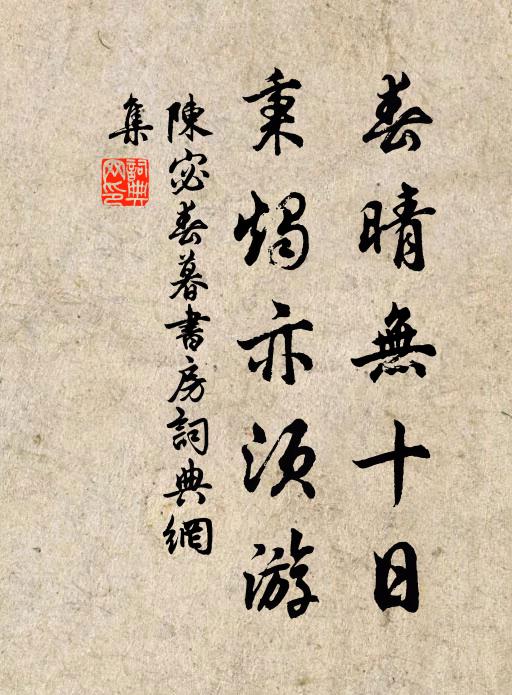 春晴無十日
秉燭亦須游
陳宓春暮書房詞典網
集
詞典
网印